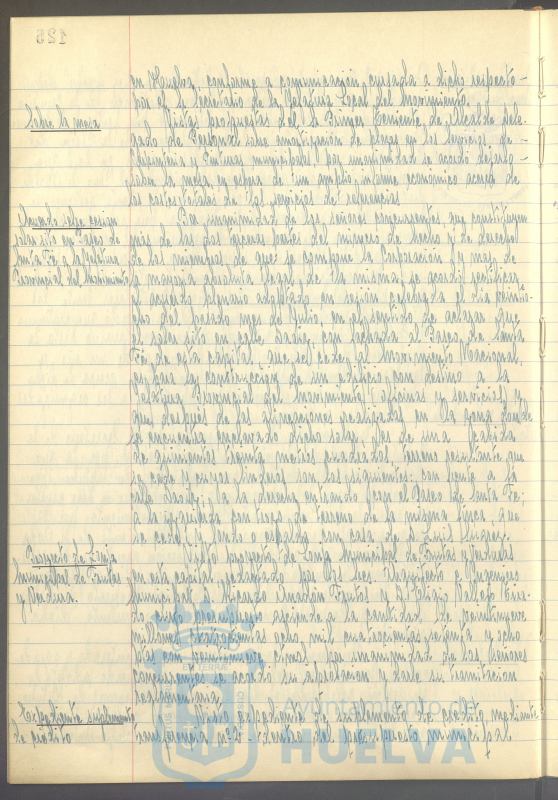 125
en Huelva, conforme a comunicación cursada a dicho respecto
por el Sr. Secretario de la Jefatura Local del Movimiento.
Sobre la mesa
Vistas propuestas del Sr. Primer Teniente de Alcalde Dele-
gado de Personal sobre amortización de plazas en los Servicios de
Carpintería y Pinturas municipales por unanimidad se acordó dejarlo
sobre la mesa, en espera de un amplio informe económico acerca de
los costes totales de los servicios de referencias
Acuerdo sobre cesión
solar sito en Paseo de
Santa Fé, a la Jefatura
Provincial del Movimiento
Por unanimidad de los señores concurrentes, que constituyen
más de las dos terceras partes del número de hecho y de derecho
de los miembros de que se compone la Corporación y por
la mayoría absoluta legal de la misma, se acordó rectificar
el acuerdo plenario adoptado en sesión celebrada el día veintio-
cho del pasado mes de Julio, en el sentido de aclarar que
el solar sito en calle con fachada al Paseo de Santa
Fé de esta capital que se cede al Movimiento Nacional,
es para la construcción de un edificio con destino a la
Jefatura Provincial del Movimiento (oficinas y servicios) y
que después de las alineaciones realizadas en la zona donde
se encuentra enclavado dicho solar, es de una
de quinientos treinta metros cuadrados, terreno resultante que
se cede y cuyos linderos son los siguientes: con frente a la
calle a la derecha entrando con el Paseo de Santa Fé;
a la izquierda con terreno de la misma finca, que
se cede y fondo o espalda con casa de D. Luis
Proyecto de Lonja
Municipal de Frutas
y Verduras.
Visto proyecto de Lonja Municipal de Frutas y Verduras
en esta capital, redactado por los Sres. Arquitecto e Ingeniero
Municipal D. Ricardo Anadón Frutos y D. Eligio
cuyo presupuesto asciende a la cantidad de veintinueve
millones ocho mil cuatrocientas setenta y ocho
ptas con veintinueve ctmos. por unanimidad de los señores
concurrentes se acordó su aprobación y dese su tramitación
reglamentaria.
Expediente suplemento
de crédito
Visto expediente de suplemento de crédito, mediante
transferencia nº 2 dentro del presupuesto municipal.
Ayuntamiento de
HUELVA